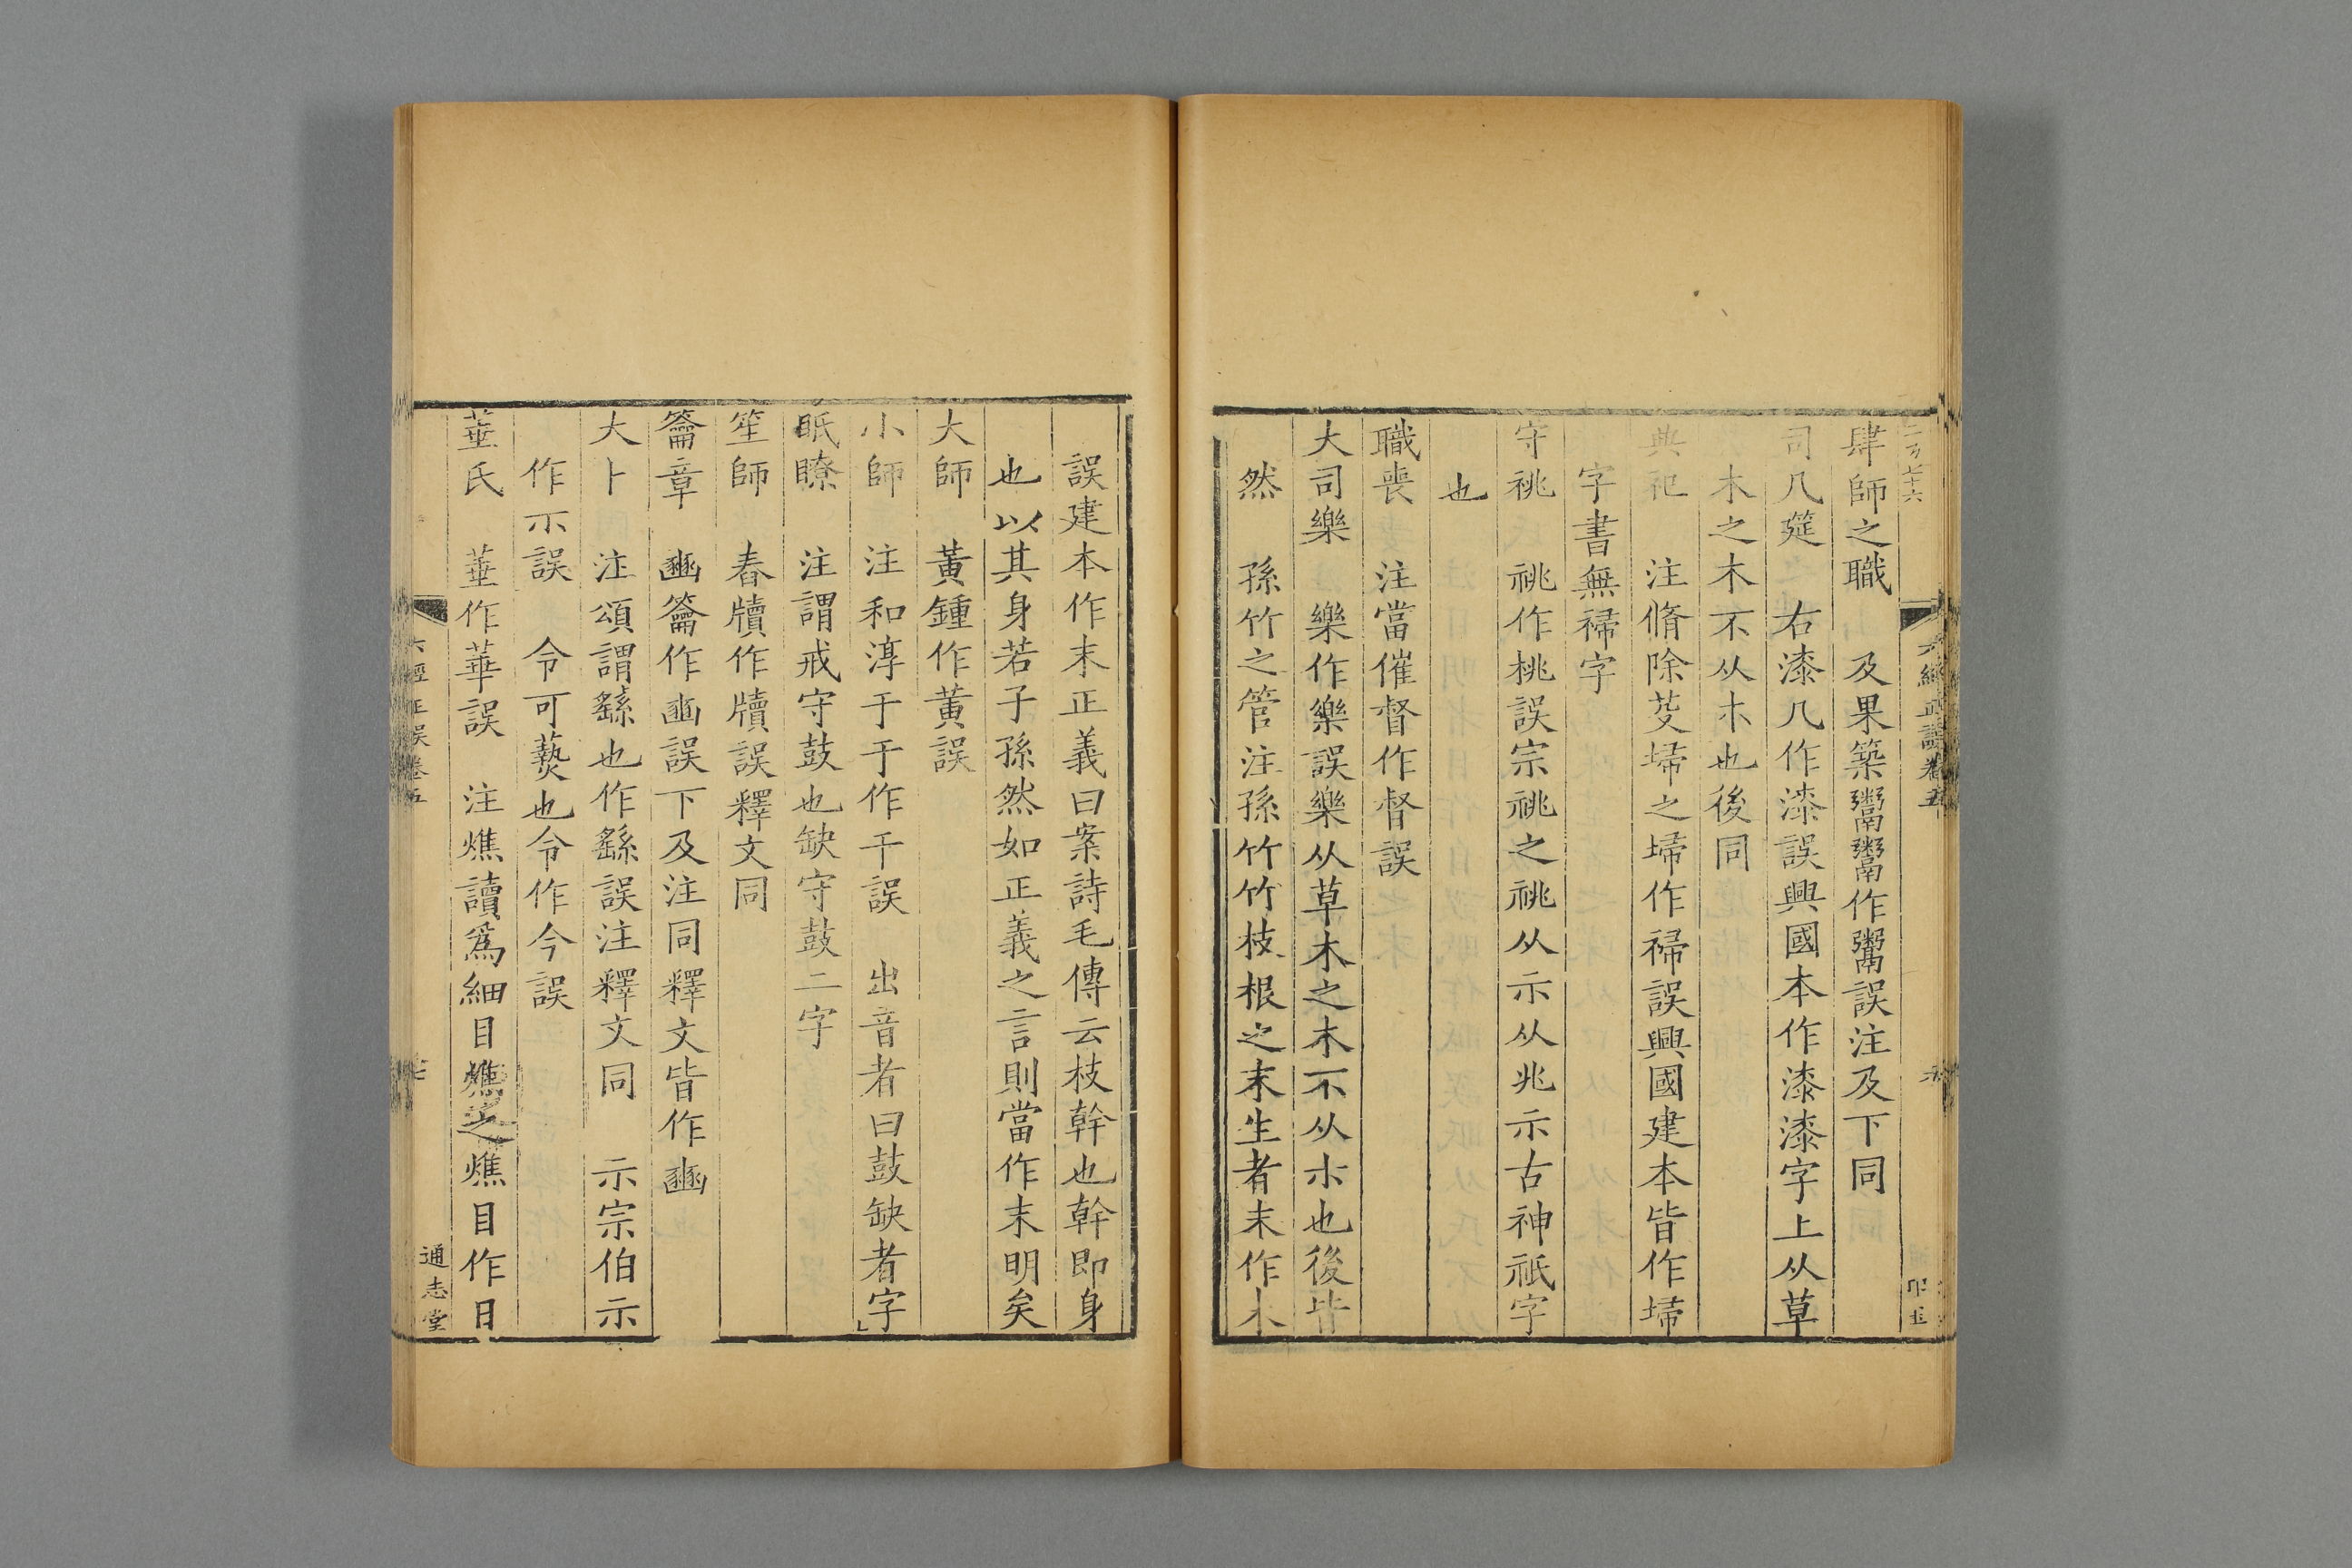 肆師之職　及果築鬻鬻作鬻誤注及下同
司几筵　右漆几作漆誤興國本作漆漆字上从草
木之木不从木也後同
典祀　注脩除芟埽之埽作禘誤興國建本皆作埽
字書無禘字
守祧　祧作桃誤宗祧之祧从示从兆示古神祇字
也
職喪　注當催督作督誤
大司樂　樂作樂誤樂从草木之木不从朩也後皆
然　孫竹之管注孫竹竹枝根之末生者末作木
誤建本作末正義曰案詩毛傳云枝幹也幹即身
也以其身若子孫然如正義之言則當作末明矣
大師　黃鍾作黄誤
小師　注和淳于于作干誤　出音者曰鼓缺者字
眂瞭　注謂戒守鼓也缺守鼓二字
笙師　舂牘作牘誤釋文同
籥章　豳籥作豳誤下及注同釋文皆作豳
大卜　注頌謂繇也作繇誤注釋文同　示宗伯示
作示誤　令可爇也令作今誤
菙氏　菙作華誤　注燋讀爲細目燋之燋目作日
六經正誤卷五
通志堂